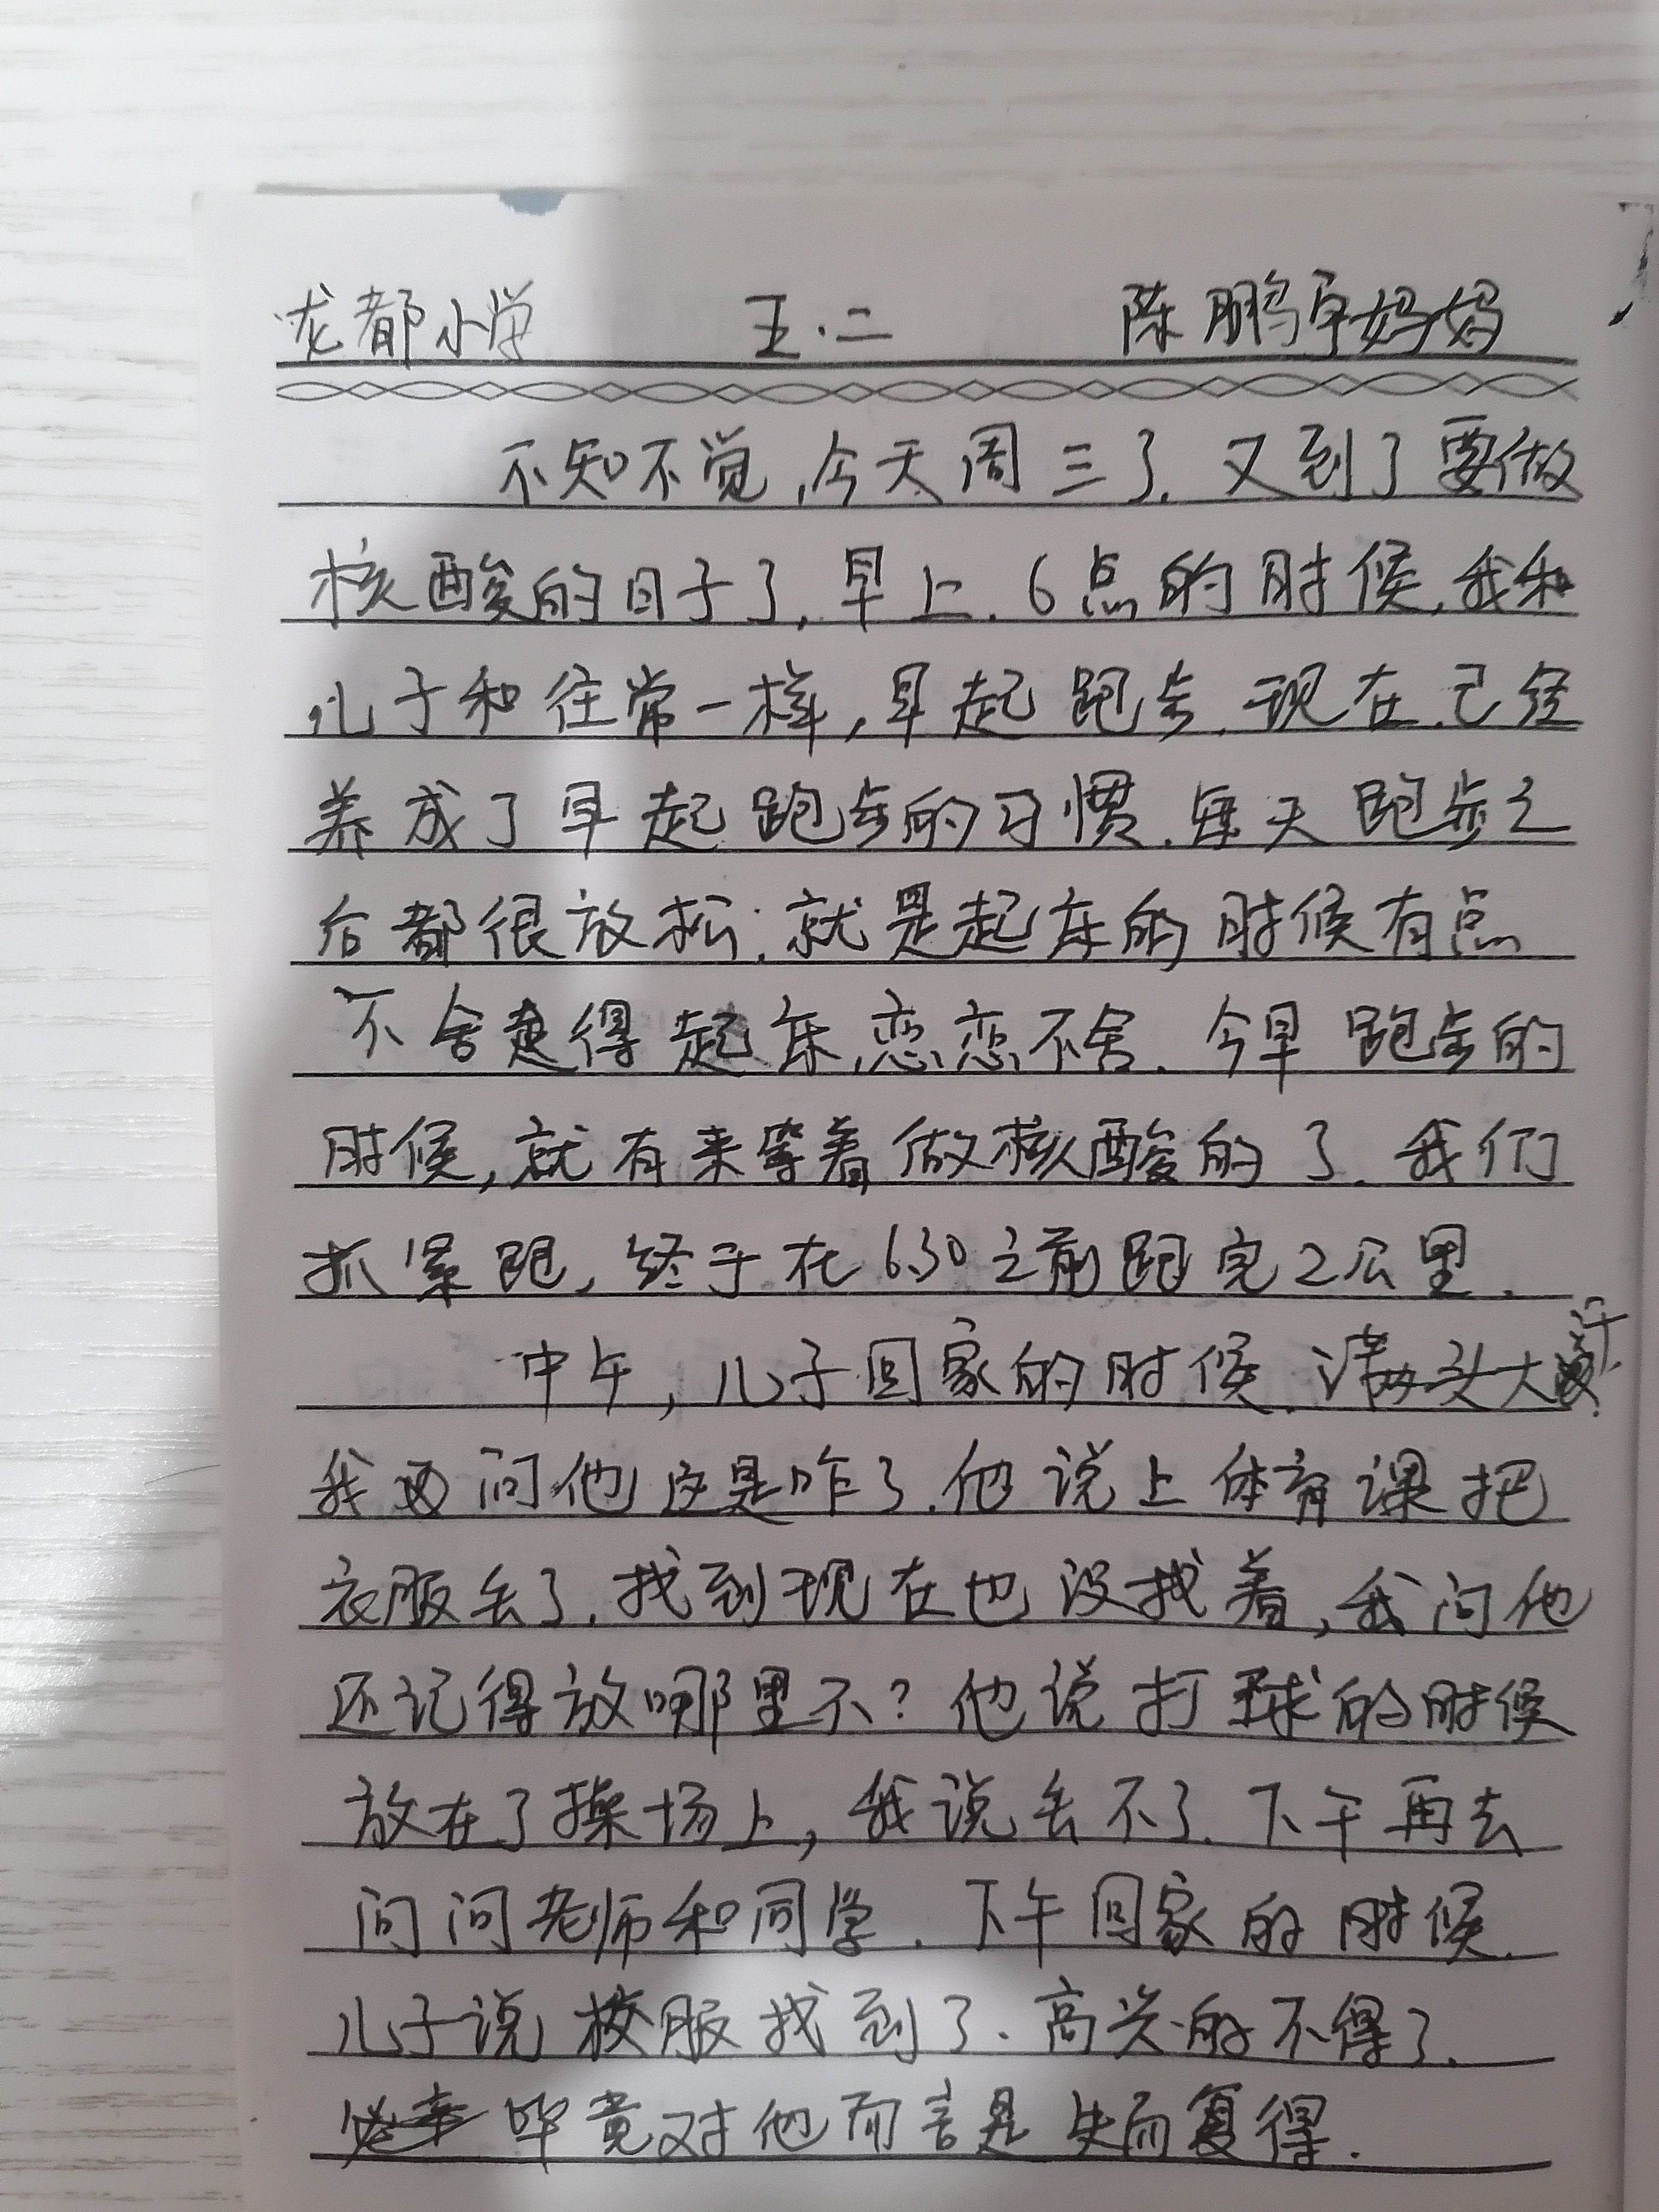 龙都小学 五.二 陈鹏宇妈妈
不知不觉,今天周三了.又到了要做
核酸的日子了,早上.6点的时候,我和
儿子和往常一样,早起跑步.现在已经
养成了早起跑步的习惯.每天跑步之
后都很放松.就是起床的时候有点
不舍得起床,恋恋不舍.今早跑步的
时候,就有来等着做核酸的了.我们
抓紧跑,终于在6:30之前跑完2公里.
中午,儿子回家的时候.满头大汗.
我问他这是咋了.他说上体育课把
衣服丢了.找到现在也没找着,我问他
还记得放哪里不?他说打球的时候
放在了操场上,我说丢不了.下午再去
问问老师和同学.下午回家的时候.
儿子说校服找到了.高兴的不得了.
毕竟对他而言是失而复得.